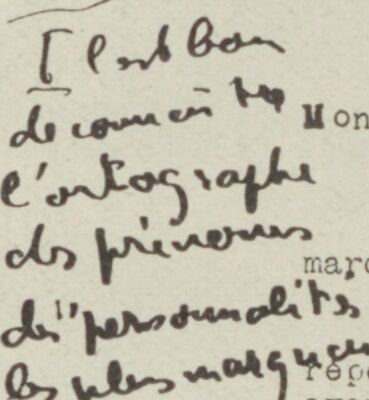 Il est bon
de connaître
l'ortographe
des prénoms
des "personnalités
les plus marquan
Mon
marq
répo